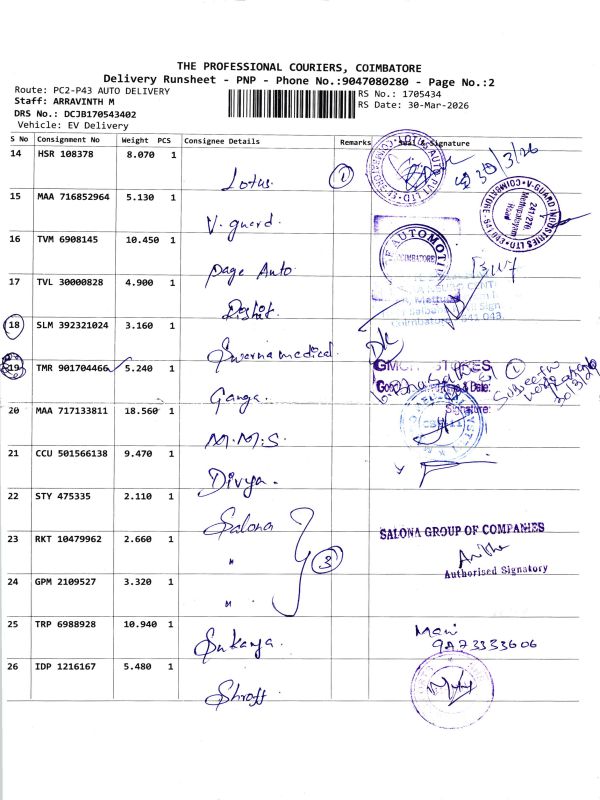 THE PROFESSIONAL COURIERS, COIMBATORE
Delivery Runsheet - PNP - Phone No.:9047080280 - Page No.:2
Route: PC2-P43 AUTO DELIVERY
RS No.: 1705434
Staff: ARRAVINTH M
RS Date: 30-Mar-2026
DRS No.: DCJB170543402
Vehicle: EV Delivery
S No Consignment No Weight PCS Consignee Details Remarks Seal & Signature
14 HSR 108378 8.070 1 Lotus. 1 30/3/26
15 MAA 716852964 5.130 1 V. guard.
V-GUARD INDUSTRIES LTD
COIMBATORE
241/270
Mettupalayam
Road
16 TVM 6908145 10.450 1 Page Auto
AUTOMOTIV
COIMBATORE
17 TVL 30000828 4.900 1
Coimbatore 641 043.
18 SLM 392321024 3.160 1 Swarna medical.
19 TMR 901704466 5.240 1 Ganga.
STORES
& Date:
Signature:
1
30/3/26
20 MAA 717133811 18.560 1 M.M.S.
21 CCU 501566138 9.470 1 Divya.
22 STY 475335 2.110 1 Salona
23 RKT 10479962 2.660 1 " 3
SALONA GROUP OF COMPANIES
Authorised Signatory
24 GPM 2109527 3.320 1 "
25 TRP 6988928 10.940 1 Sukanya.
Mani
26 IDP 1216167 5.480 1 Shroff